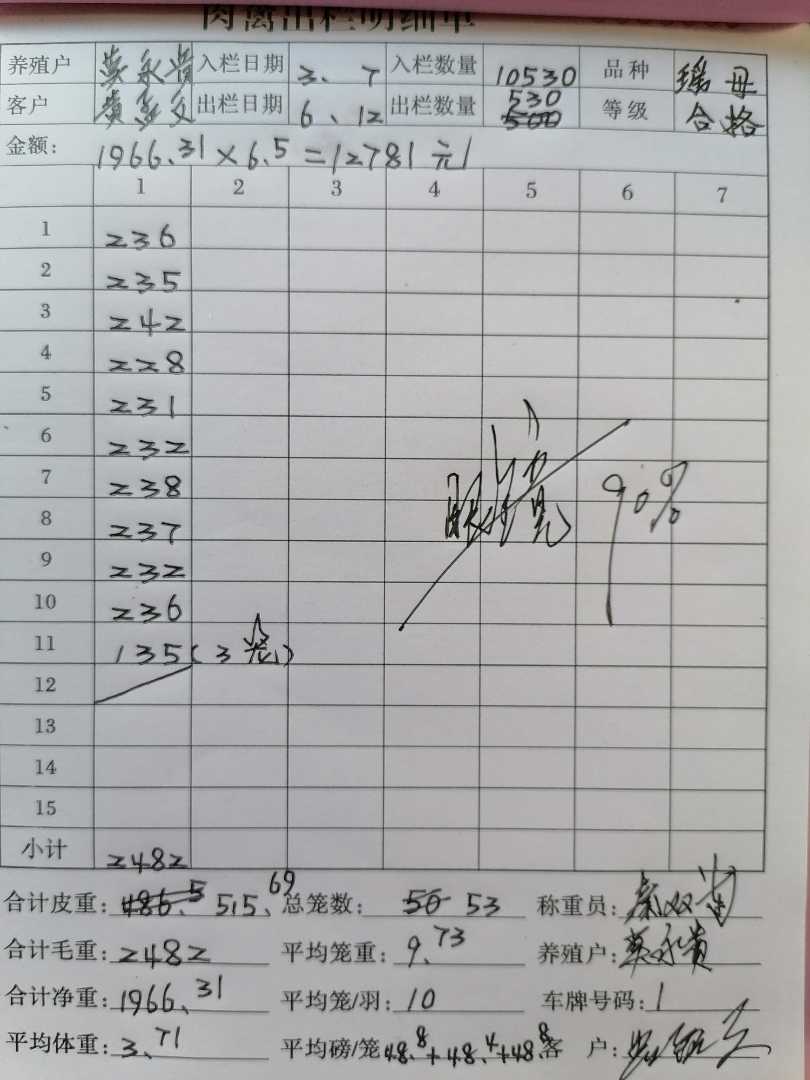 肉禽出栏明细单
养殖户 莫永贵 入栏日期 3、7 入栏数量 10530 品种 瑶母
客户 出栏日期 6、12 出栏数量 530 500 等级 合格
金额: 1966.31×6.5=12781元
1 2 3 4 5 6 7
1 236
2 235
3 242
4 228
5 231
6 232
7 238
8 237
9 232
10 236
11 135(3笼)
12
13
14
15
90%
小计 2482
合计皮重: 486.5 515.69 总笼数: 50 53 称重员:
合计毛重: 2482 平均笼重: 9.73 养殖户: 莫永贵
合计净重: 1966.31 平均笼/羽: 10 车牌号码: 1
平均体重: 3.71 平均磅/笼 48.8+48.4+48.8 客 户: